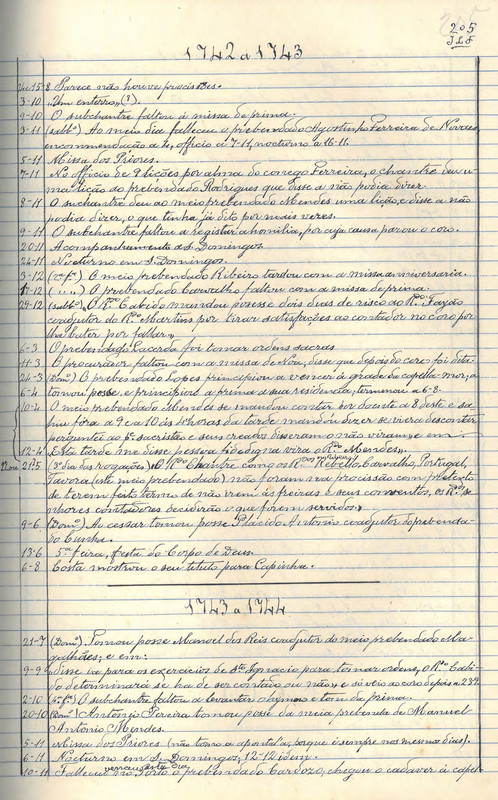 205
J.L.F.
1742 a 1743
15-8 Parece não houve procissões.
3-10 "Um enterro" (?).
9-10 O subchantre faltou à missa de prima.
3-11 (sabº) Ao meio dia falleceu o prebendado Agostinho Ferreira de Novaes,
encommendação a 4, officio a 7-11, nocturno a 16-11.
5-11 Missa dos Priores.
7-11 No officio de 9 lições por alma do conego Ferreira, o chantre deu u-
ma lição ao prebendado Rodrigues que disse a não podia dizer.
8-11 O suchantre deu ao meio prebendado Mendes uma lição, e disse a não
podia dizer, o que tinha já dito por mais vezes.
9-11 O subchantre faltou a registar a homilia, por cuja causa parou o coro.
20-11 Acompanhamento a S. Domingos
22-11 Nocturno em S. Domingos.
3-12 (2ª fª) O meio prebendado Ribeiro tardou com a missa anniversaria.
17-12 (" ") O prebendado Carvalho faltou com a missa de prima.
29-12 (sabº) O Rº Cabido mandou pozesse dois dias de risco ao Rº Fajão
coadjutor do Rº Martins por tirar satisfações ao contador no coro por
lhe bater por faltar.
6-3 O prebendado Lacerda foi tomar ordens sacras
11-3 O procurador faltou com a missa de Noa, disse que depois do coro foi dita
24-3 (Domº) O prebendado Lopes principiou a vencer à grade da capella-mor; a
6-4 tomou posse e principiou a prima a sua residencia, terminou a 6-8.
10-4 O meio prebendado Mendes se mandou contar por doente a 8 deste e sa-
hiu fora a 9 e a 10 às 4 horas da tarde mandou dizer se viera descontar
perguntei ao Pº sacristão e seus creados disseram o não viram, e em
12-4 "Esta tarde me disse pessoa fidedigna vira o Rº Mendes".
21-5 (3º dia das rogações) "O Rº Chantre com os Rdos Rebello, Carvalho, Portugal,
Tavora (este meio prebendado) não foram na procissão com pretexto
de terem feito termo de não irem às freiras e seus conventos, os Rº Se-
nhores contadores decidirão o que forem servidos."
9-6 (Domº) Ao cassar tomou posse Placido Antonio coadjutor do prebenda-
do Cunha.
13-6 5ª feira, festa do Corpo de Deus.
6-8 Costa mostrou o seu titulo para Capinha.
1743 a 1744
21-7 (Domº) Tomou posse Manoel dos Reis coadjutor do meio prebendado Ma-
galhães; e em:
9-9 "disse ia para os exercicios de Stº Ignacio para tomar ordens, o Rº Cabi-
do determinará se ha de ser contado ou não", e só veio ao coro depois a 23-9.
2-10 (4ª fª) O subchantre faltou a levantar o hymno e tom da prima.
20-10 (Domº) Antonio Pereira tomou posse da meia prebenda de Manuel
Antonio Mendes.
5-11 Missa dos Priores (não torno a apontal-a, porque é sempre nos mesmos dias).
6-11 Nocturno em S. Domingos, 12-12 idem.
10-11 Falleceu no Porto o prebendado Cardozo, chegou o cadaver à capel-